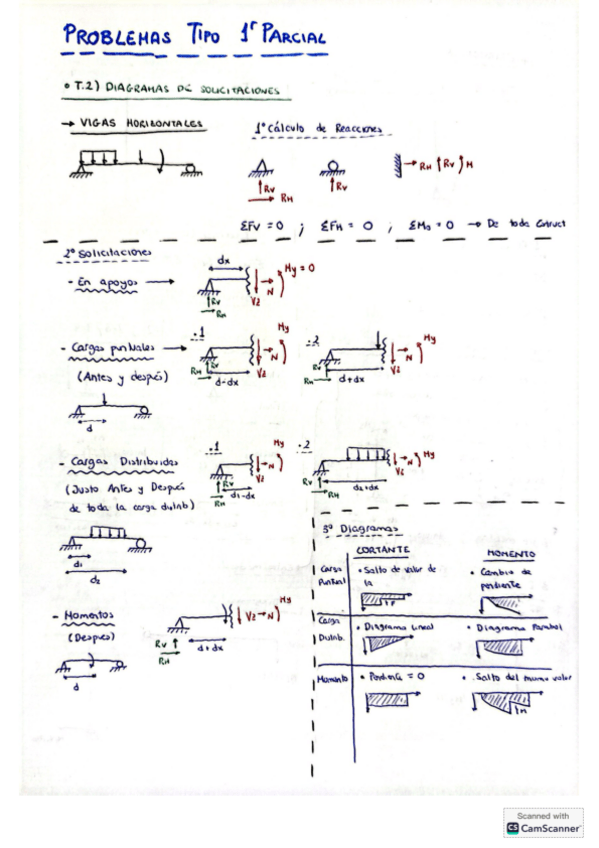 PROBLEMAS TIPO 1r PARCIAL
• T.2) DIAGRAMAS DE SOLICITACIONES
→ VIGAS HORIZONTALES
1º Cálculo de Reacciones
RV
RH
RV
→ RH ↑RV M
ΣFV = 0 ; ΣFH = 0 ; ΣMa = 0 → De toda Estruct
2º Solicitaciones
- En apoyos →
dx
My = 0
N
Vz
RV
RH
- Cargas puntuales →
(Antes y después)
d
.1
My
N
Vz
RH
RV
d-dx
.2
My
N
Vz
RV
RH
d+dx
- Cargas Distribuidas
(Justo Antes y Después
de toda la carga distrib)
d1
d2
.1
My
N
Vz
RV
RH
d1-dx
.2
My
N
Vz
RV
RH
d2+dx
- Momentos
(Después)
d
My
Vz → N
RV
RH
d+dx
3º Diagramas
CORTANTE
MOMENTO
Carga
Puntual
• Salto de valor de
la
P
• Cambio de
pendiente
Carga
Distrib.
• Diagrama Lineal
• Diagrama Parabol
Momento
• Pendiente = 0
• Salto del mismo valor
M
Scanned with
CS CamScanner